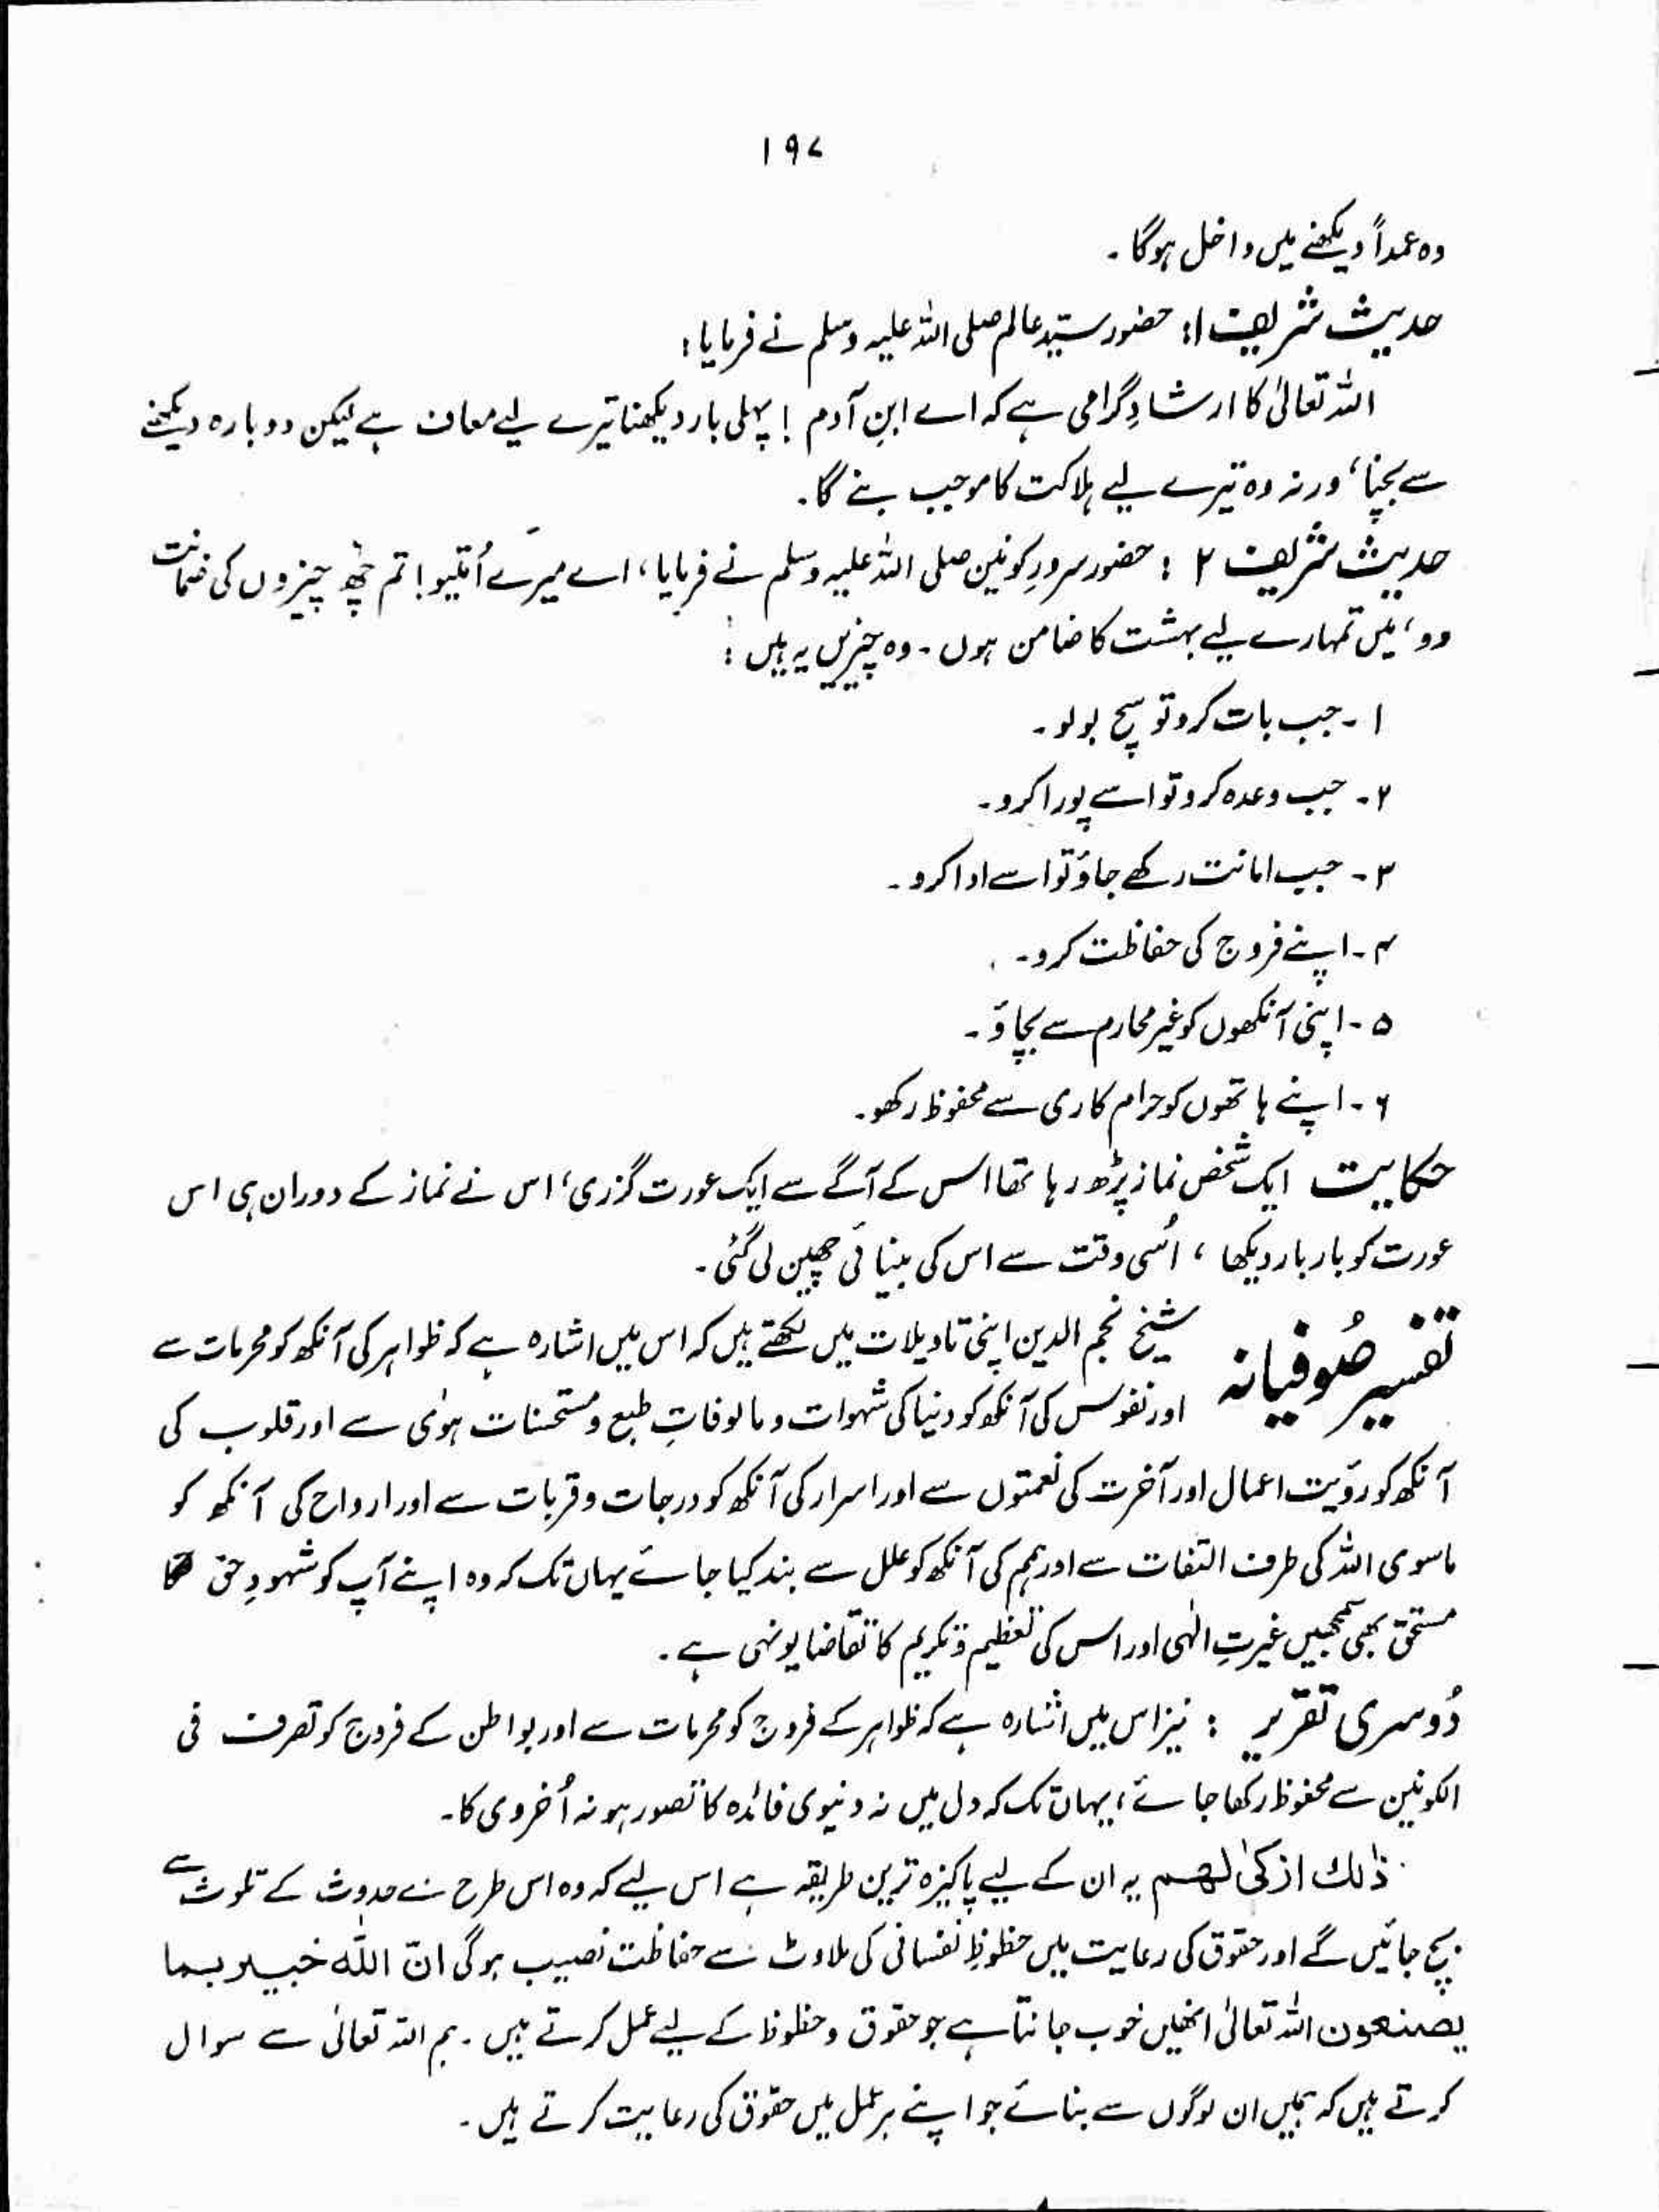 ۱۹۷
وہ عمداً دیکھنے میں داخل ہوگا۔
حدیث شریف ۱: حضور سیّدِ عالم صلی اللہ علیہ وسلم نے فرمایا:
اللہ تعالیٰ کا ارشادِ گرامی ہے کہ اے ابنِ آدم ! پہلی بار دیکھنا تیرے لیے معاف ہے لیکن دوبارہ دیکھنے
سے بچنا، ورنہ وہ تیرے لیے ہلاکت کا موجب بنے گا۔
حدیث شریف ۲ : حضور سرورِ کونین صلی اللہ علیہ وسلم نے فرمایا، اے میرے اُمتیو! تم چھ چیزوں کی ضمانت
دو، میں تمہارے لیے بہشت کا ضامن ہوں۔ وہ چیزیں یہ ہیں :
۱۔ جب بات کرو تو سچ بولو۔
۲۔ جب وعدہ کرو تو اسے پورا کرو۔
۳۔ جب امانت رکھے جاؤ تو اسے ادا کرو۔
۴۔ اپنے فروج کی حفاظت کرو۔
۵۔ اپنی آنکھوں کو غیر محارم سے بچاؤ۔
۶۔ اپنے ہاتھوں کو حرام کاری سے محفوظ رکھو۔
حکایت ایک شخص نماز پڑھ رہا تھا اس کے آگے سے ایک عورت گزری، اس نے نماز کے دوران ہی اس
عورت کو بار بار دیکھا ، اُسی وقت سے اس کی بینائی چھین لی گئی۔
تفسیر صُوفیانہ شیخ نجم الدین اپنی تاویلات میں لکھتے ہیں کہ اس میں اشارہ ہے کہ ظواہر کی آنکھ کو محرمات سے
اور نفوس کی آنکھ کو دنیا کی شہوات و مالوفاتِ طبع و مستحسنات ہوٰی سے اور قلوب کی
آنکھ کو رؤیت اعمال اور آخرت کی نعمتوں سے اور اسرار کی آنکھ کو درجات و قربات سے اور ارواح کی آنکھ کو
ماسوی اللہ کی طرف التفات سے اور ہمم کی آنکھ کو علل سے بند کیا جائے یہاں تک کہ وہ اپنے آپ کو شہودِ حق کا
مستحق بھی سمجھیں غیرتِ الٰہی اور اس کی تعظیم و تکریم کا تقاضا یونہی ہے۔
دُوسری تقریر : نیز اس میں اشارہ ہے کہ ظواہر کے فروج کو محرمات سے اور بواطن کے فروج کو تصرف فی
الکونین سے محفوظ رکھا جائے، یہاں تک کہ دل میں نہ دنیوی فائدہ کا تصور ہو نہ اُخروی کا۔
ذٰلك ازكىٰ لهم یہ ان کے لیے پاکیزہ ترین طریقہ ہے اس لیے کہ وہ اس طرح سے حدوث کے تلوث سے
بچ جائیں گے اور حقوق کی رعایت میں حظوظِ نفسانی کی ملاوٹ سے حفاظت نصیب ہوگی انّ اللّٰه خبير بما
يصنعون اللہ تعالیٰ انھیں خوب جانتا ہے جو حقوق و حظوظ کے لیے عمل کرتے ہیں۔ ہم اللہ تعالیٰ سے سوال
کرتے ہیں کہ ہمیں ان لوگوں سے بنائے جو اپنے ہر عمل میں حقوق کی رعایت کرتے ہیں۔